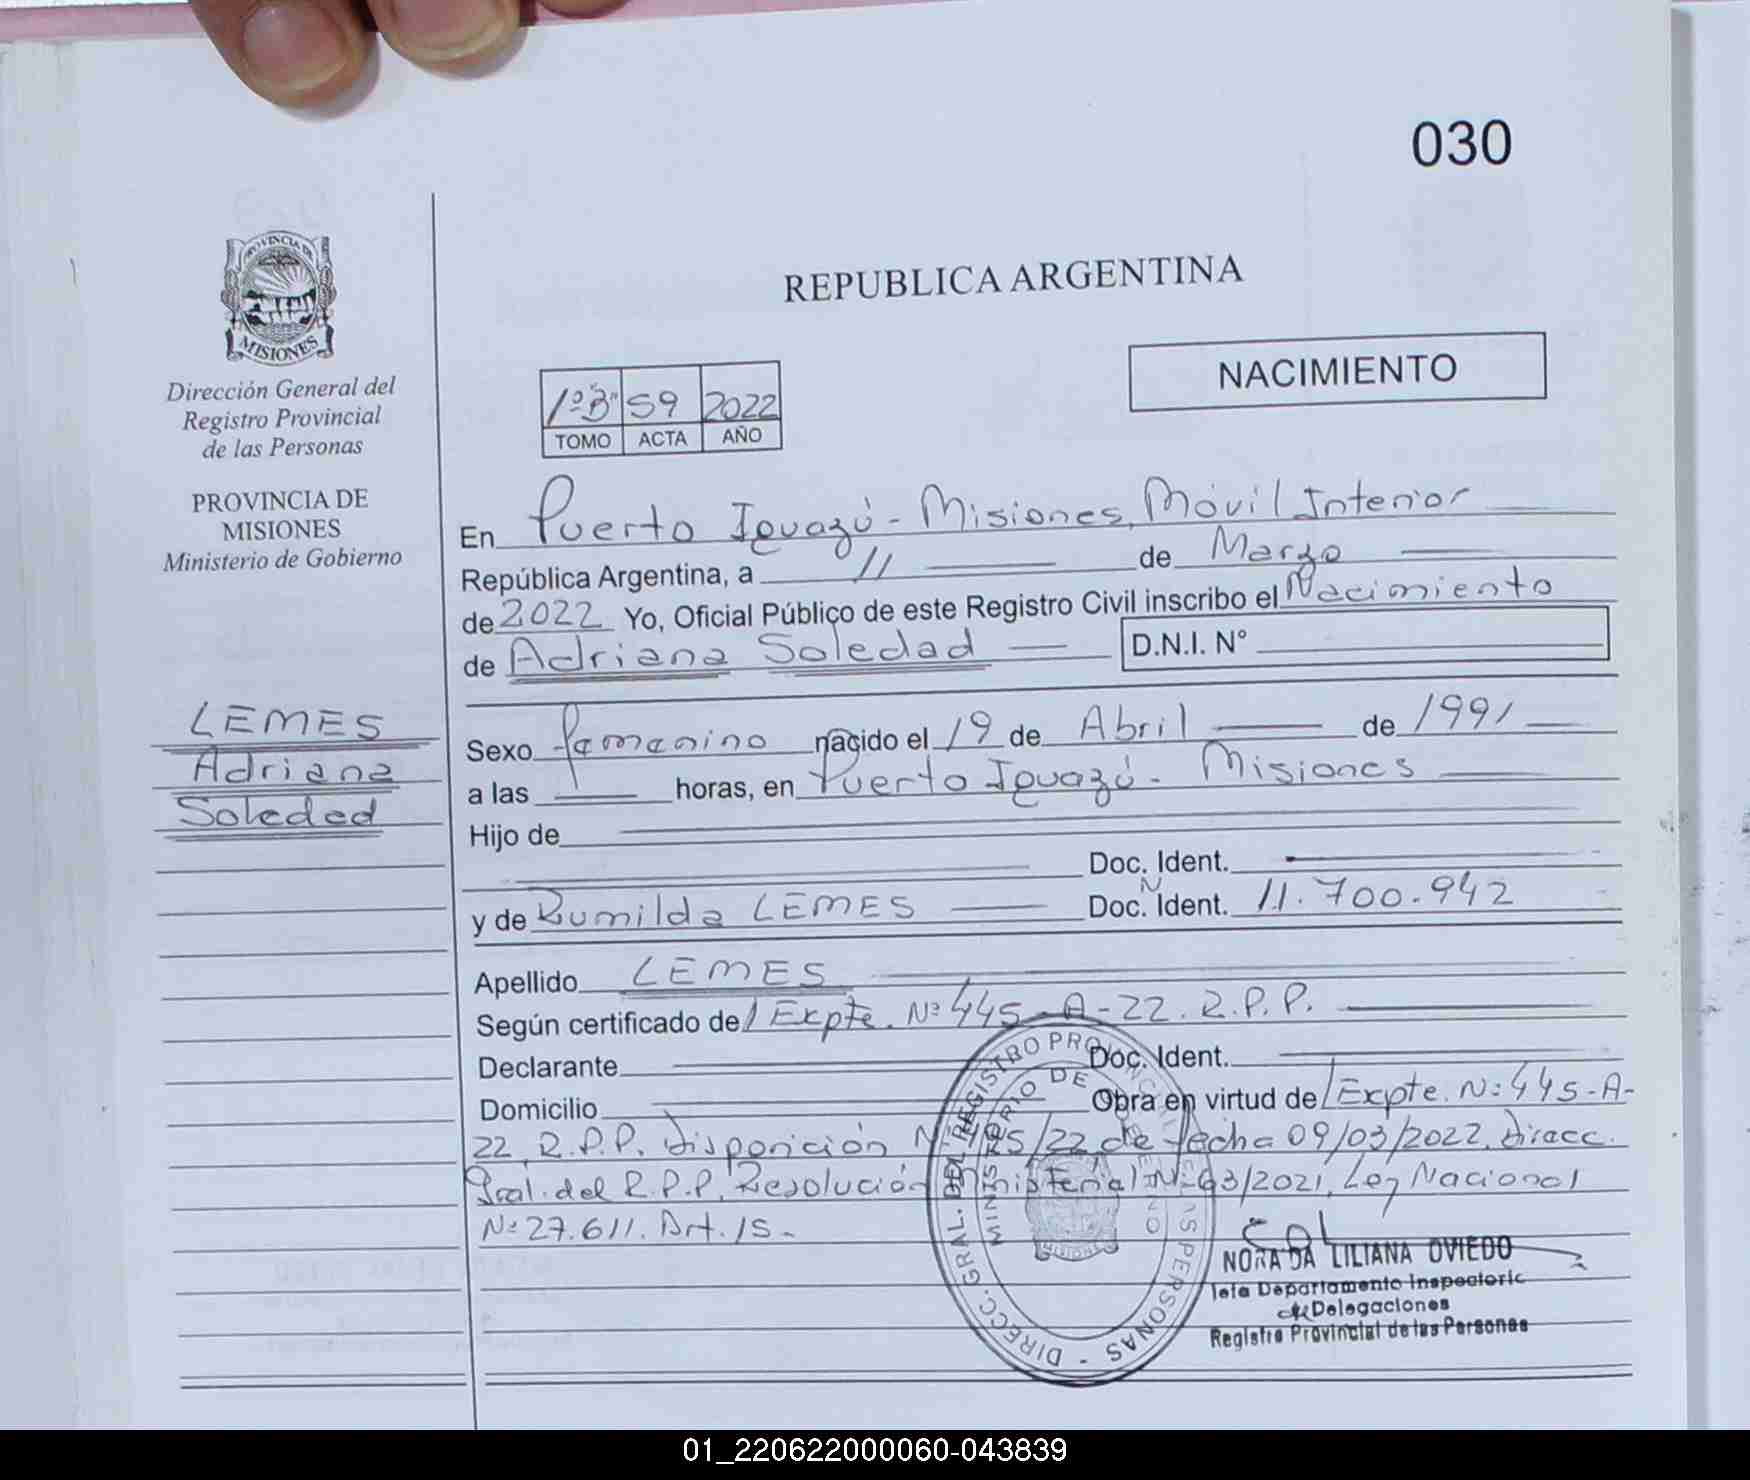 030
PROVINCIA DE
MISIONES
Dirección General del
Registro Provincial
de las Personas
PROVINCIA DE
MISIONES
Ministerio de Gobierno
LEMES
Adriana
Soledad
REPUBLICA ARGENTINA
NACIMIENTO
1º"B" 59 2022
TOMO ACTA AÑO
En Puerto Iguazú - Misiones, Móvil Interior
República Argentina, a 11 de Marzo
de 2022 Yo, Oficial Público de este Registro Civil inscribo el Nacimiento
de Adriana Soledad D.N.I. N°
Sexo femenino nacido el 19 de Abril de 1991
a las horas, en Puerto Iguazú - Misiones
Hijo de
Doc. Ident.
y de Rumilda LEMES Doc. Ident. N 11.700.942
Apellido LEMES
Según certificado de/ Expte. Nº 445-A-22. R.P.P.
Declarante Doc. Ident.
Domicilio Obra en virtud de/ Expte. Nº 445-A-
22, R.P.P. Disposición /22 de fecha 09/03/2022, Direcc.
Gral. del R.P.P. Resolución Ministerial Nº 63/2021, Ley Nacional
Nº 27.611. Art. 15.-
DIRECC. GRAL. DEL REGISTRO PROVINCIAL DE LAS PERSONAS -
MINISTERIO DE GOBIERNO
NORA DA LILIANA OVIEDO
Jefa Departamento Inspectoría
de Delegaciones
Registro Provincial de las Personas
01_220622000060-043839